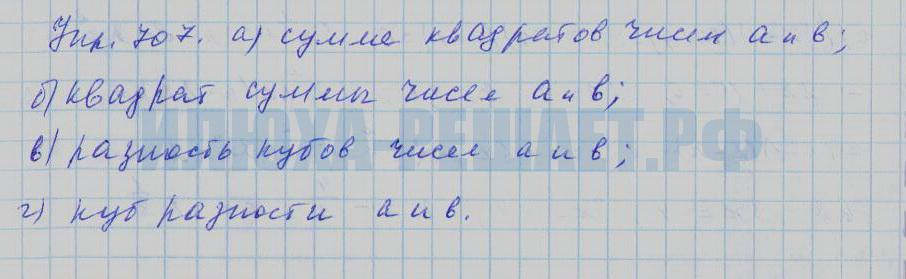 Упр. 707. а) сумма квадратов чисел а и в;
б) квадрат суммы чисел а и в;
в) разность кубов чисел а и в;
ИЛЮХА-РЕШАЕТ.РФ
г) куб разности а и в.